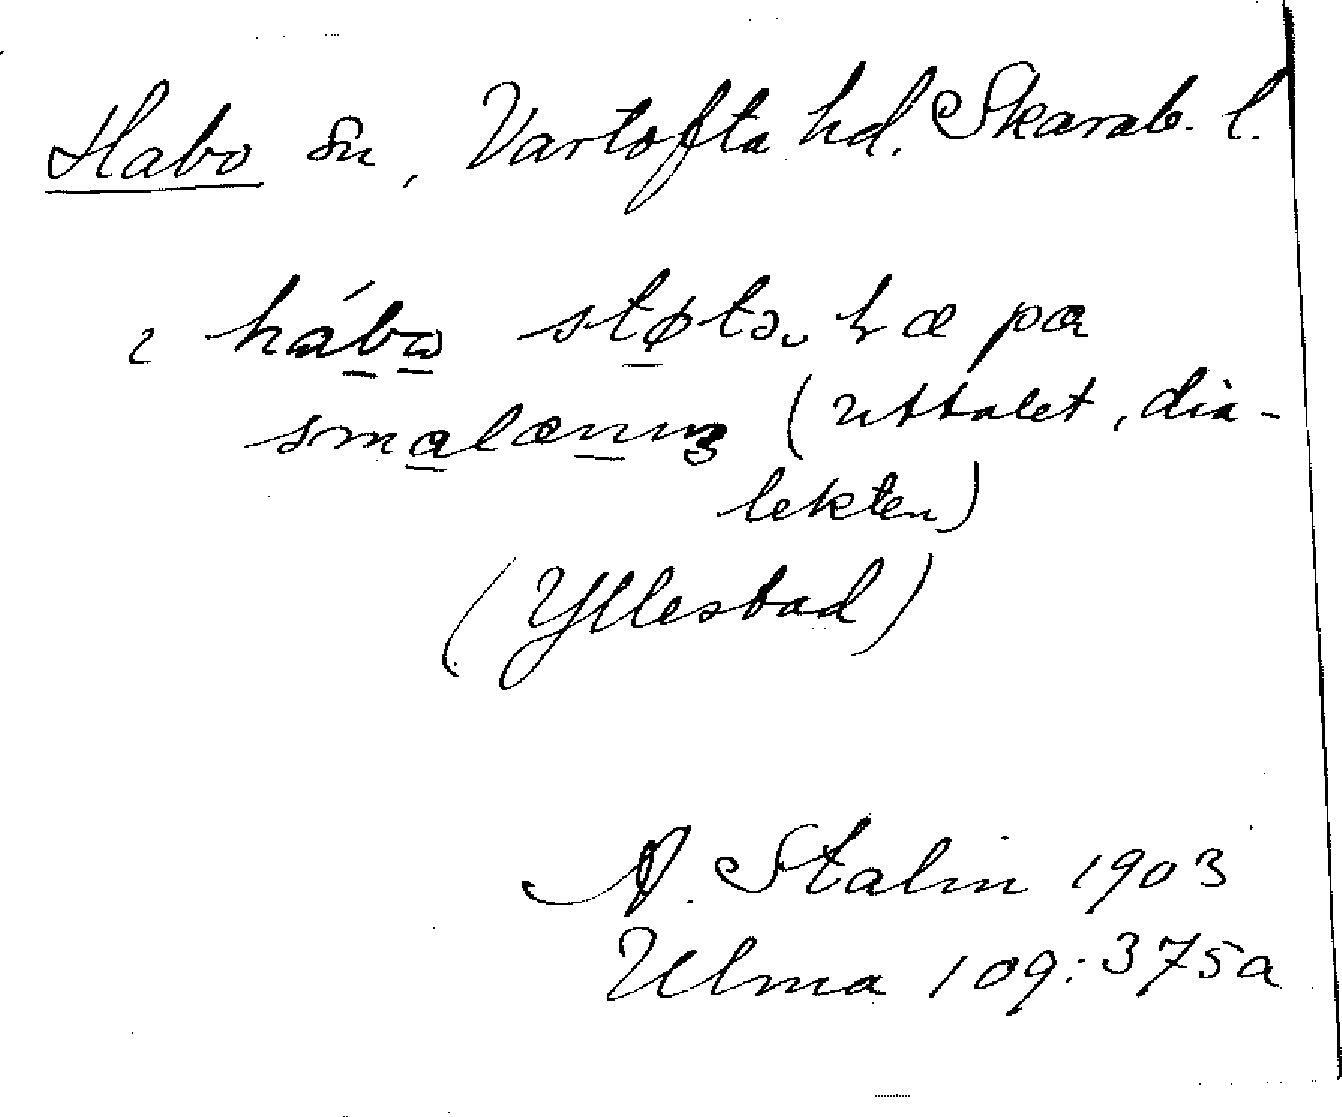 Habo sn, Vartofta hd. Skarab. l.
hábo støtə
smalænnɜ (uttalet, dia-
lekten)
(Yllestad)
A. Stalin 1903
Ulma 109:375a